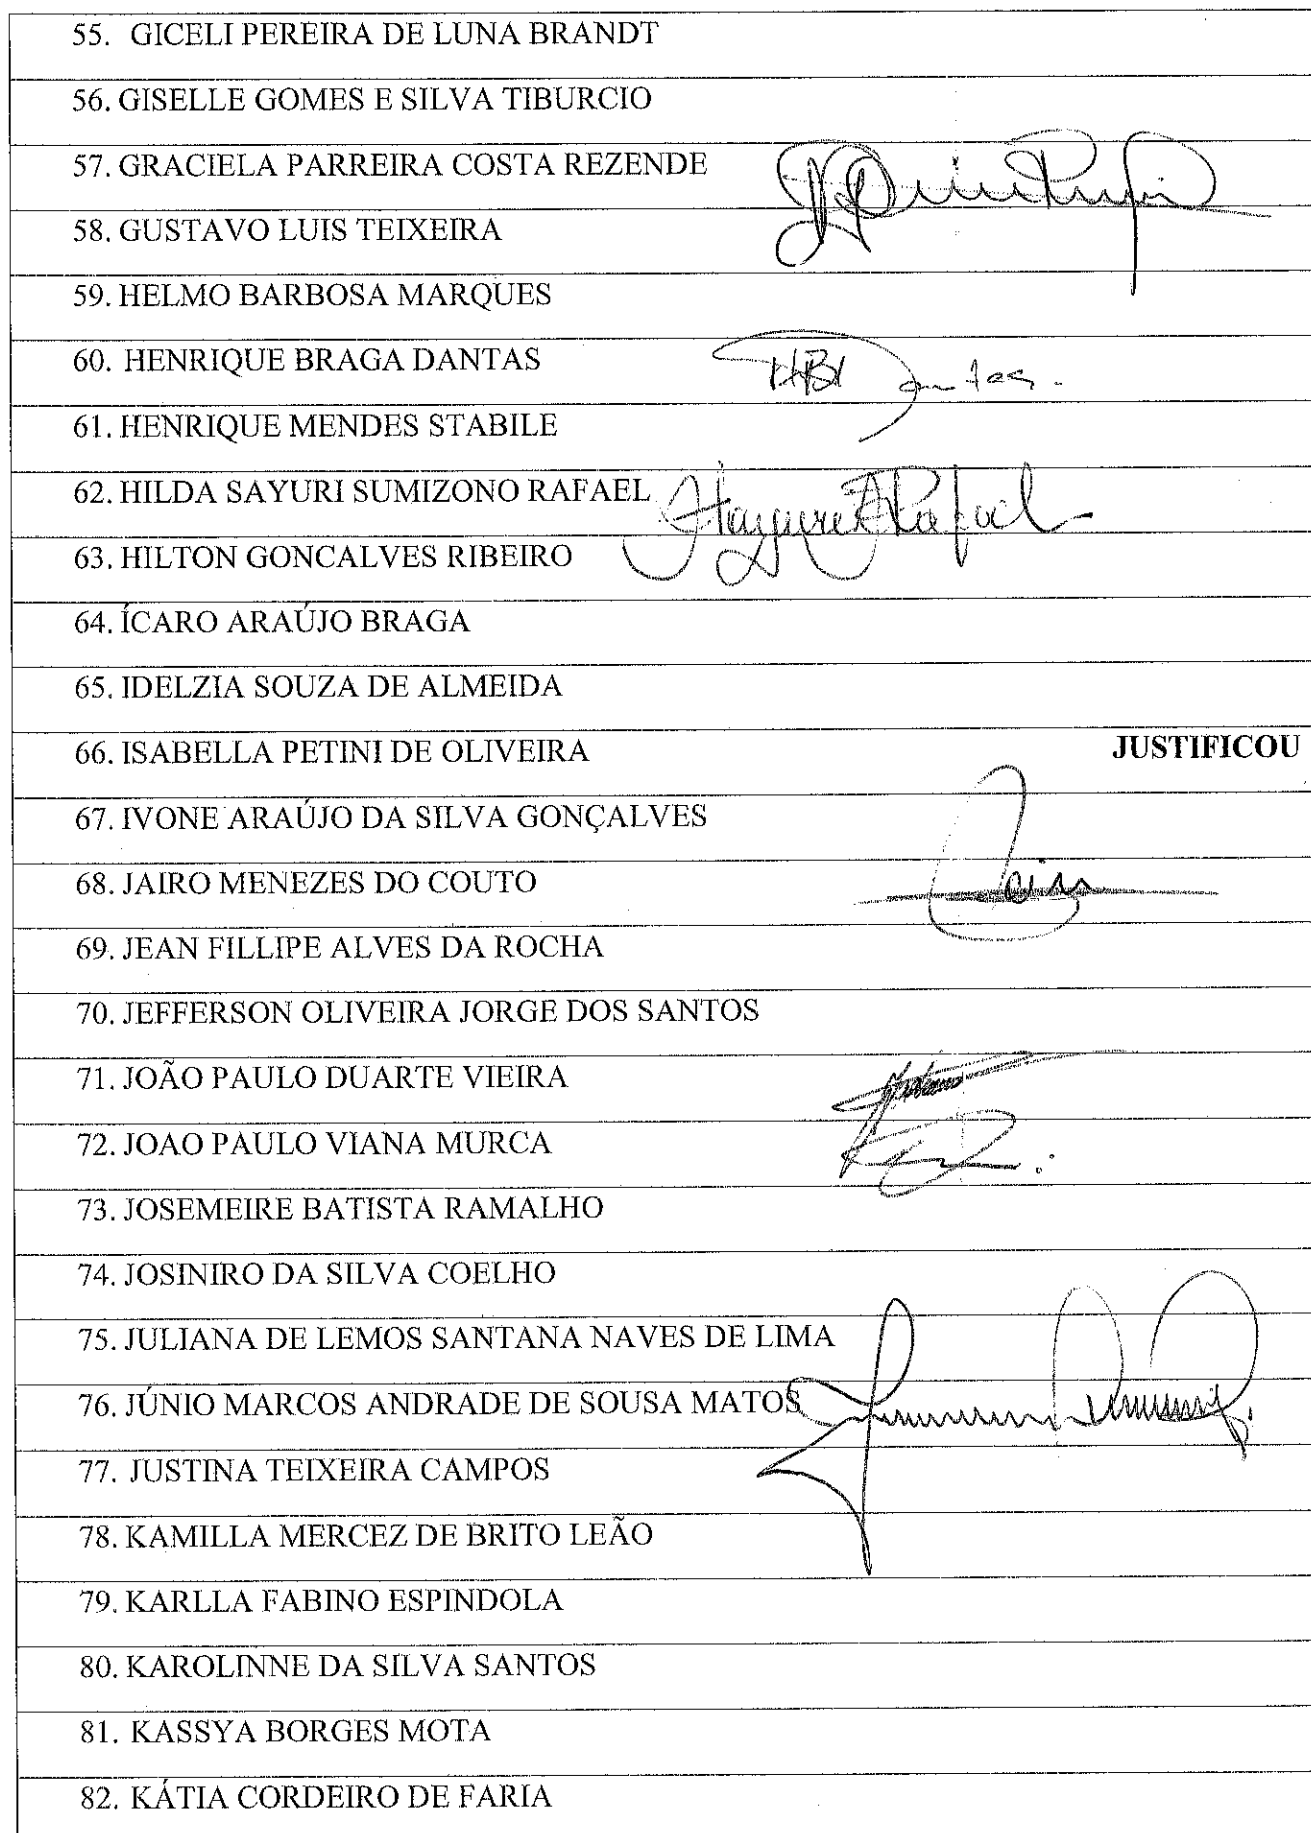 55. GICELI PEREIRA DE LUNA BRANDT
56. GISELLE GOMES E SILVA TIBURCIO
57. GRACIELA PARREIRA COSTA REZENDE
58. GUSTAVO LUIS TEIXEIRA
59. HELMO BARBOSA MARQUES
60. HENRIQUE BRAGA DANTAS HBDantas.
61. HENRIQUE MENDES STABILE
62. HILDA SAYURI SUMIZONO RAFAEL
63. HILTON GONCALVES RIBEIRO
64. ÍCARO ARAÚJO BRAGA
65. IDELZIA SOUZA DE ALMEIDA
66. ISABELLA PETINI DE OLIVEIRA JUSTIFICOU
67. IVONE ARAÚJO DA SILVA GONÇALVES
68. JAIRO MENEZES DO COUTO
69. JEAN FILLIPE ALVES DA ROCHA
70. JEFFERSON OLIVEIRA JORGE DOS SANTOS
71. JOÃO PAULO DUARTE VIEIRA
72. JOAO PAULO VIANA MURCA
73. JOSEMEIRE BATISTA RAMALHO
74. JOSINIRO DA SILVA COELHO
75. JULIANA DE LEMOS SANTANA NAVES DE LIMA
76. JÚNIO MARCOS ANDRADE DE SOUSA MATOS
77. JUSTINA TEIXEIRA CAMPOS
78. KAMILLA MERCEZ DE BRITO LEÃO
79. KARLLA FABINO ESPINDOLA
80. KAROLINNE DA SILVA SANTOS
81. KASSYA BORGES MOTA
82. KÁTIA CORDEIRO DE FARIA